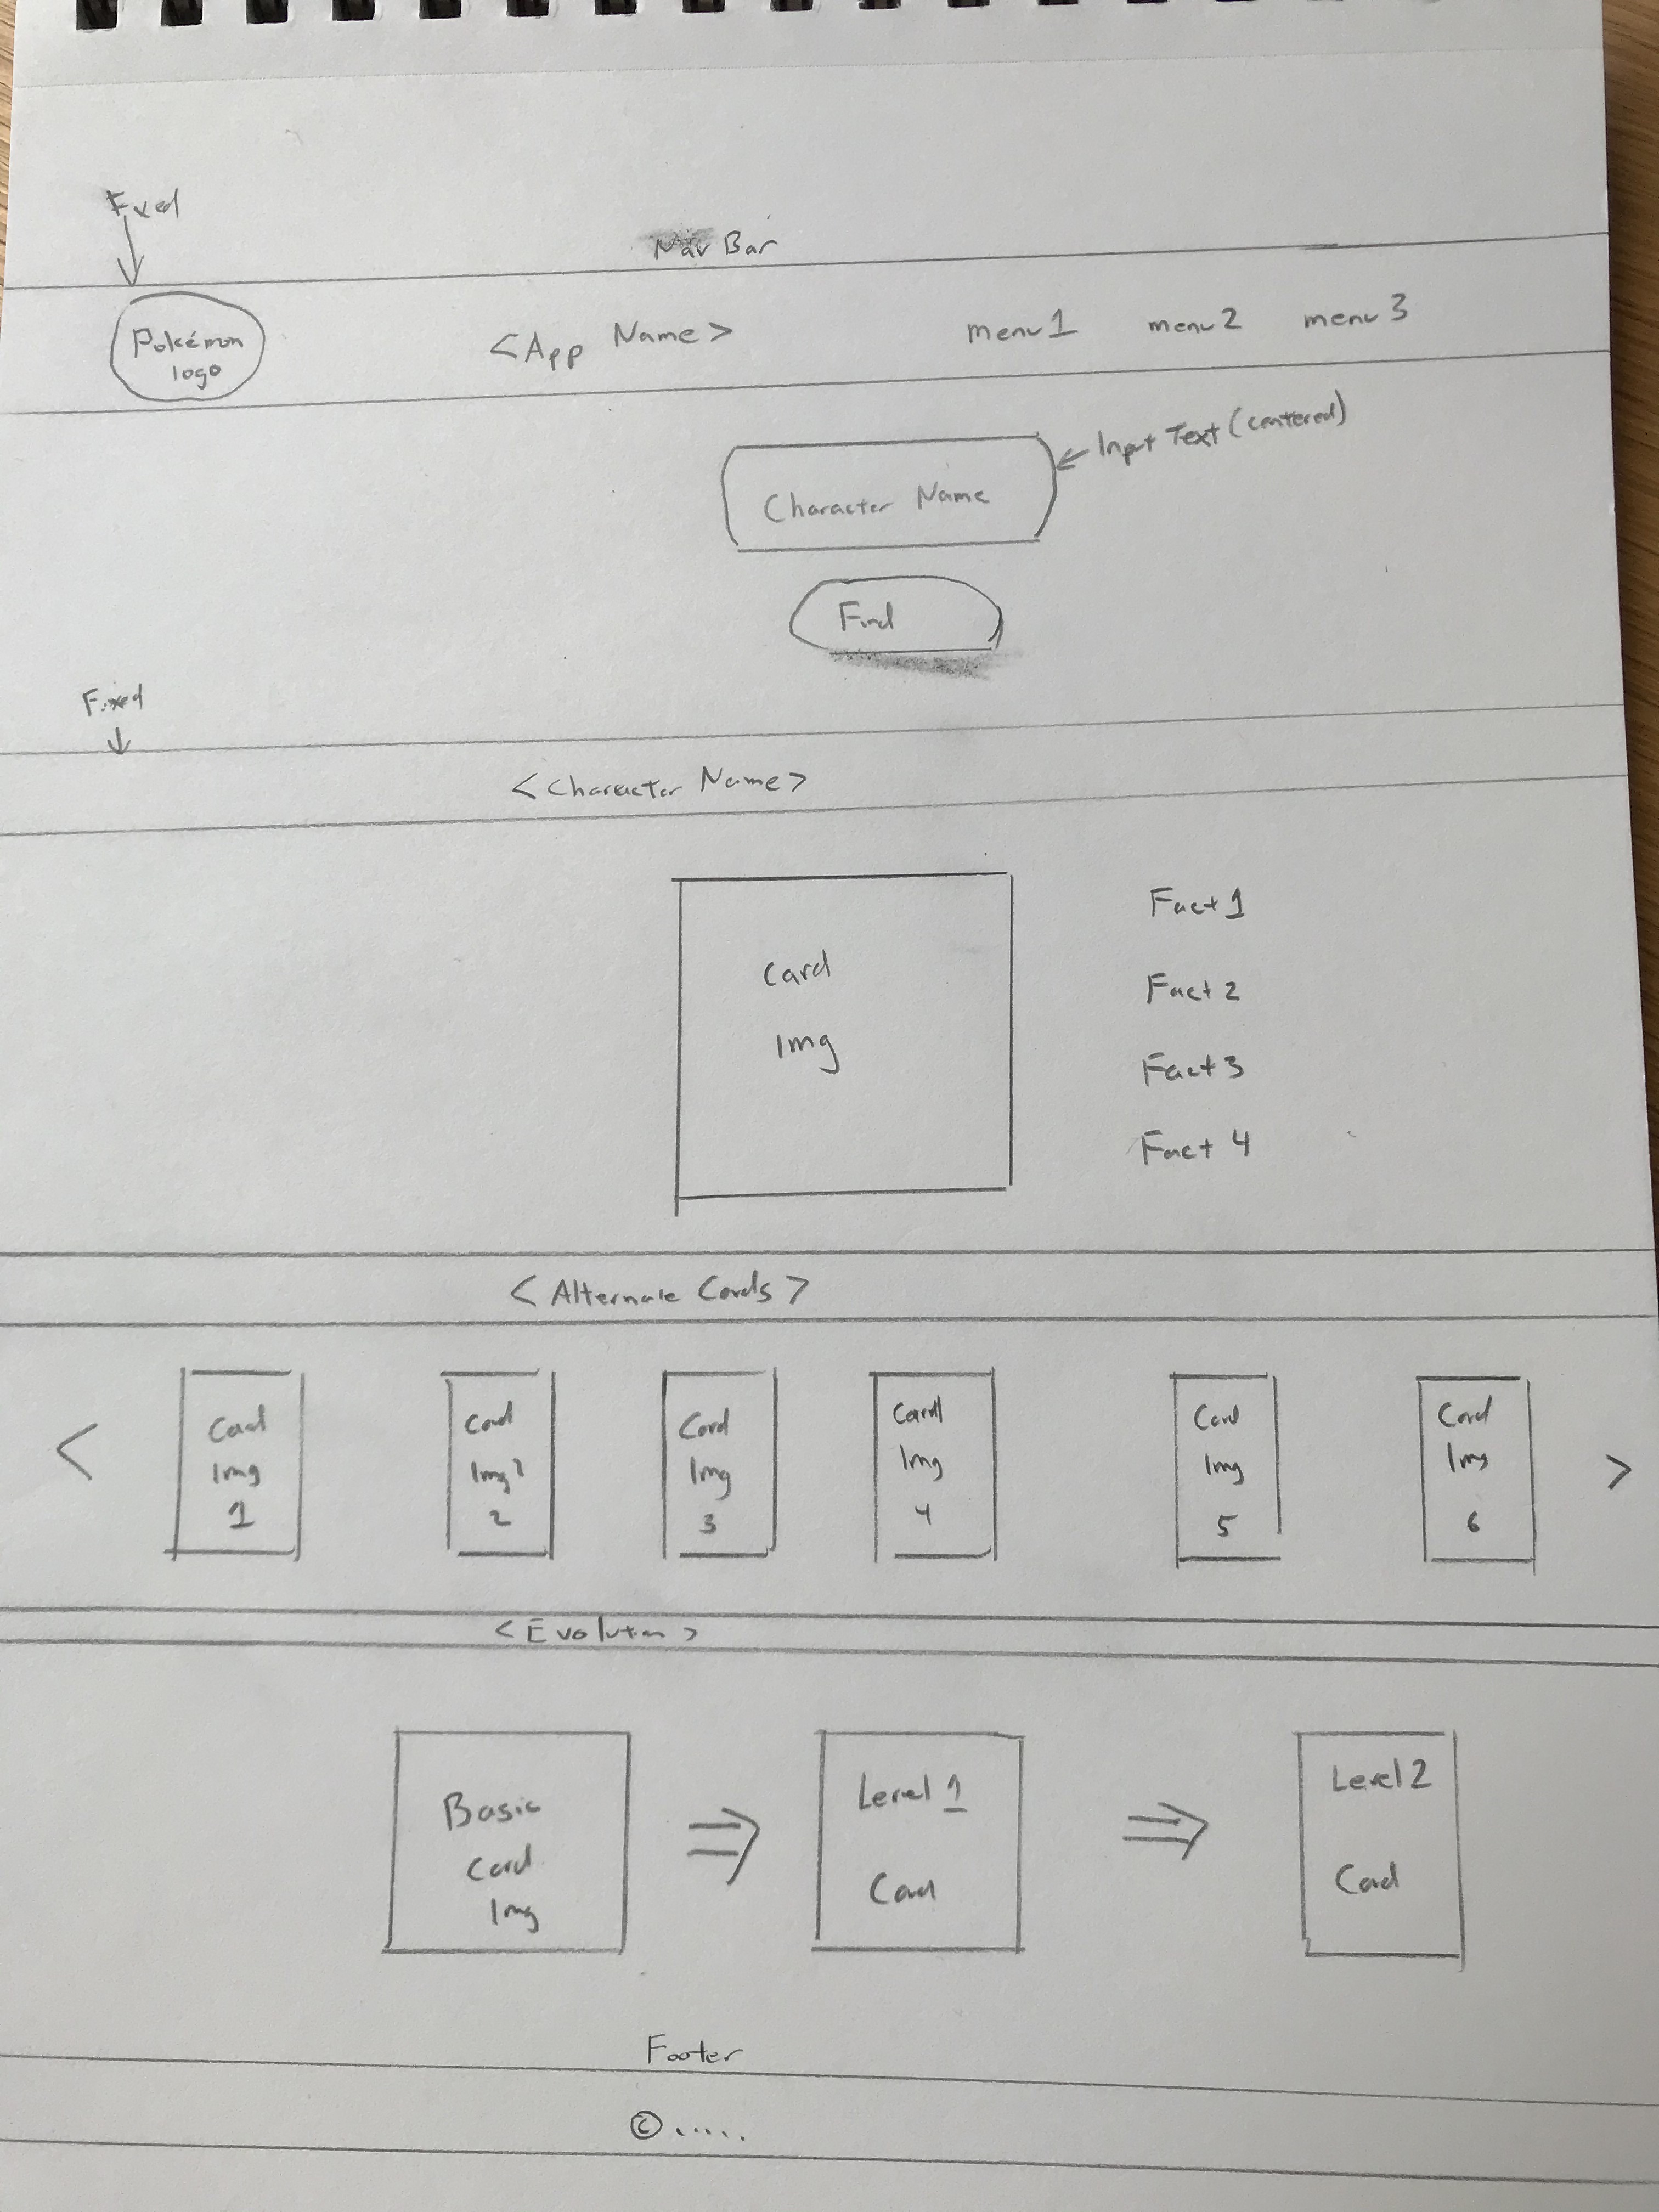 Fixed
Nav Bar
Pokémon
logo
<App Name>
menu 1
menu 2
menu 3
Input Text (centered)
Character Name
Find
Fixed
<Character Name>
Card
Img
Fact 1
Fact 2
Fact 3
Fact 4
<Alternate Cards>
<
Card
Img
1
Card
Img
2
Card
Img
3
Card
Img
4
Card
Img
5
Card
Img
6
>
<Evolution>
Basic
Card
Img
Level 1
Card
Level 2
Card
Footer
© .....